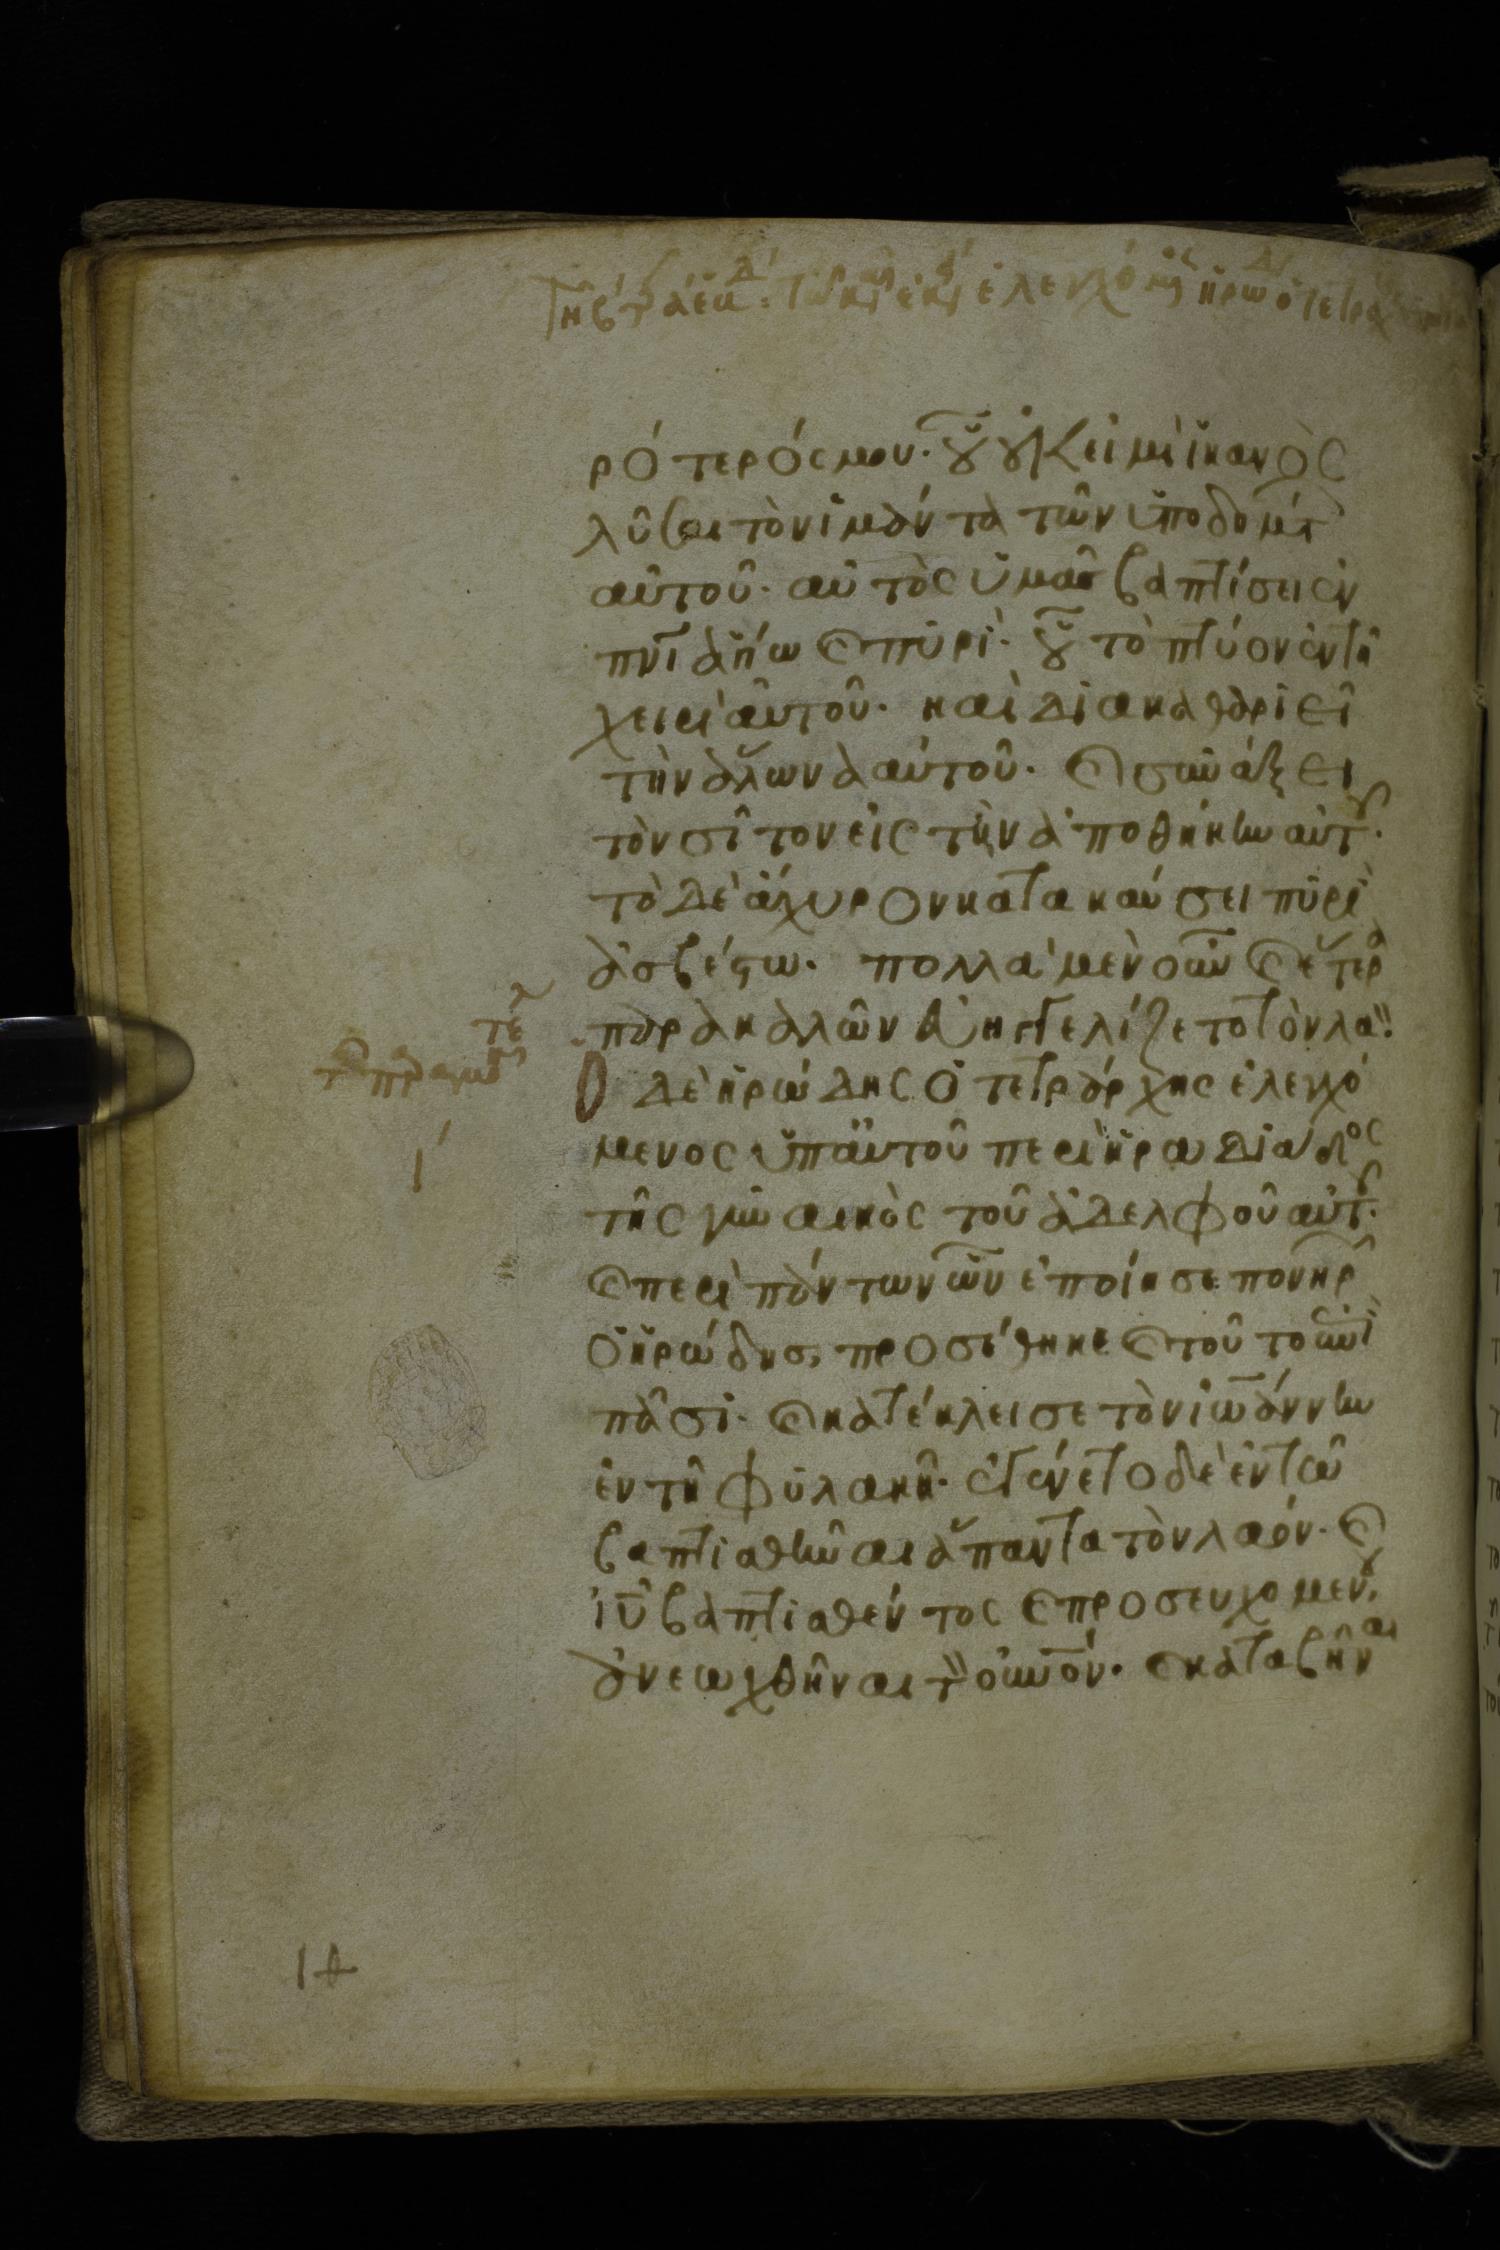 ρότερός μου. οὗ οὐκ εἰμὶ ἱκανὸς
λῦσαι τὸν ἱμάντα τῶν ὑποδημάτ
αὐτοῦ. αὐτὸς ὑμᾶς βαπτίσει ἐν
πνι ἁγίω καὶ πυρί. οὗ τὸ πτύον ἐν τῆ
χειρὶ αὐτοῦ. καὶ διακαθαριεῖ
τὴν ἅλωνα αὐτοῦ. καὶ συνάξει
τὸν σῖτον εἰς τὴν ἀποθήκην αὐτοῦ.
τὸ δὲ ἄχυρον κατακαύσει πυρὶ
ἀσβέστω. πολλὰ μὲν οὖν καὶ ἕτερα
παρακαλῶν εὐηγγελίζετο τὸν λαόν.
Ὁ δὲ ἡρώδης ὁ τετράρχης ἐλεγχό
μενος ὑπ αὐτοῦ περὶ ἡρωδιάδος
τῆς γυναικὸς τοῦ ἀδελφοῦ αὐτοῦ.
καὶ περὶ πάντων ὧν ἐποίησε πονηρῶν
ὁ ἡρώδης, προσέθηκε καὶ τοῦτο ἐπὶ
πᾶσι. καὶ κατέκλεισε τὸν ἰωάννην
ἐν τῆ φυλακῆ. ἐγένετο δὲ ἐν τῶ
βαπτισθῆναι ἅπαντα τὸν λαόν. καὶ
ιυ βαπτισθέντος καὶ προσευχομένου.
ἀνεωχθῆναι τὸν οὐνόν. καὶ καταβῆναι